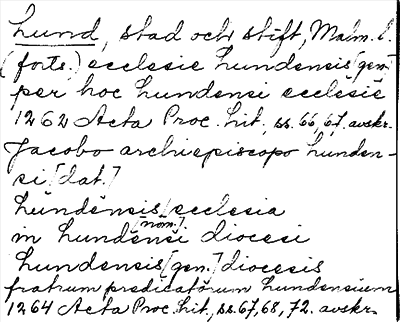 Lund, stad och stift, Malm. l.
(forts.) ecclesie Lundensis [gen.]
per hoc Lundensi ecclesie
1262 Acta Proc. lit., ss. 66, 67. avskr.
Jacobo archiepiscopo Lunden-
si [dat.]
Lundensis [nom.] ecclesia
in Lundensi diocesi
Lundensis [gen.] diocesis
fratrum predicatorum Lundensium
1264 Acta Proc. lit., ss. 67, 68, 72. avskr.